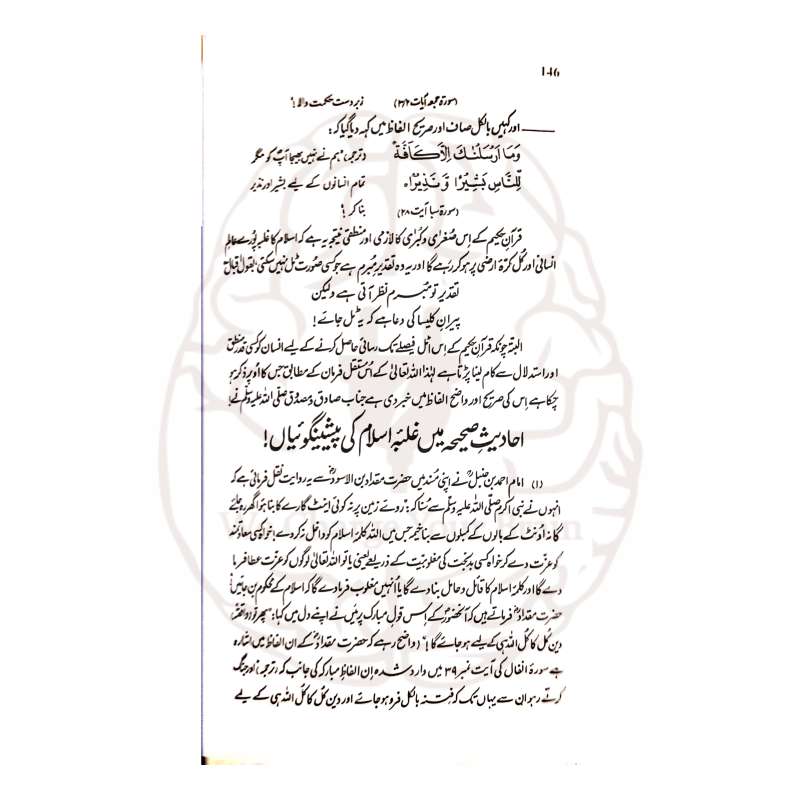 146
(سورۃ جمعہ آیات ۲، ۳) زبردست حکمت والا!"
——— اور کہیں بالکل صاف اور صریح الفاظ میں کہہ دیا گیا کہ:
وَمَا اَرْسَلْنٰكَ اِلَّا كَافَّةً (ترجمہ) "ہم نے نہیں بھیجا آپؐ کو مگر
لِّلنَّاسِ بَشِيْرًا وَّ نَذِيْرًا، تمام انسانوں کے لیے بشیر اور نذیر
(سورۃ سبا آیت ۲۸) بنا کر!"
قرآنِ حکیم کے اِس صُغریٰ و کُبریٰ کا لازمی اور منطقی نتیجہ یہ ہے کہ اسلام کا غلبہ پُورے عالمِ
انسانی اور کُل کرّۂ ارضی پر ہو کر رہے گا اور یہ وہ تقدیرِ مُبرم ہے جو کسی صورت ٹل نہیں سکتی، بقول اقبال
تقدیر تو مُبرم نظر آتی ہے ولیکن
پیرانِ کلیسا کی دعا ہے کہ یہ ٹل جائے!
البتہ چونکہ قرآنِ حکیم کے اِس اٹل فیصلے تک رسائی حاصل کرنے کے لیے انسان کو کسی قدر منطق
اور استدلال سے کام لینا پڑتا ہے لہٰذا اللہ تعالیٰ کے اُس مستقل فرمان کے مطابق جس کا اُوپر ذکر ہو
چکا ہے اِس کی صریح اور واضح الفاظ میں خبر دی ہے جناب صادق و مصدُوق صلّی اللہ علیہ وسلّم نے!
احادیثِ صحیحہ میں غلبۂ اسلام کی پیشینگوئیاں!
(۱) امام احمد بن حنبلؒ نے اپنی مُسند میں حضرت مقداد بن الاسودؓ سے یہ روایت نقل فرمائی ہے کہ
انہوں نے نبی اکرم صلّی اللہ علیہ وسلّم سے سُنا کہ: رُوئے زمین پر نہ کوئی اینٹ گارے کا بنا ہوا گھر رہ جائے
گا نہ اُونٹ کے بالوں کے کمبلوں سے بنا خیمہ جس میں اللہ کلمۂ اسلام کو داخل نہ کر دے، خواہ کسی سعادتمند
کو عزت دے کر خواہ کسی بدبخت کی مغلوبیت کے ذریعے یعنی یا تو اللہ تعالیٰ لوگوں کو عزت عطا فرما
دے گا اور کلمۂ اسلام کا قائل و حامل بنا دے گا یا اُنہیں مغلوب فرما دے گا کہ اسلام کے محکوم بن جائیں"
حضرت مقدادؓ فرماتے ہیں کہ آنحضورؐ کے اِس قولِ مبارک پر میں نے اپنے دل میں کہا: "پھر تو (واقعتہً)
دین کُل کا کُل اللہ ہی کے لیے ہو جائے گا!" (واضح رہے کہ حضرت مقدادؓ کے ان الفاظ میں اشارہ
ہے سورۂ انفال کی آیت نمبر ۳۹ میں وارد شدہ اِن الفاظِ مبارکہ کی جانب کہ (ترجمہ) "اور جنگ
کرتے رہو ان سے یہاں تک کہ فتنہ بالکل فرو ہو جائے اور دین کُل کا کُل اللہ ہی کے لیے